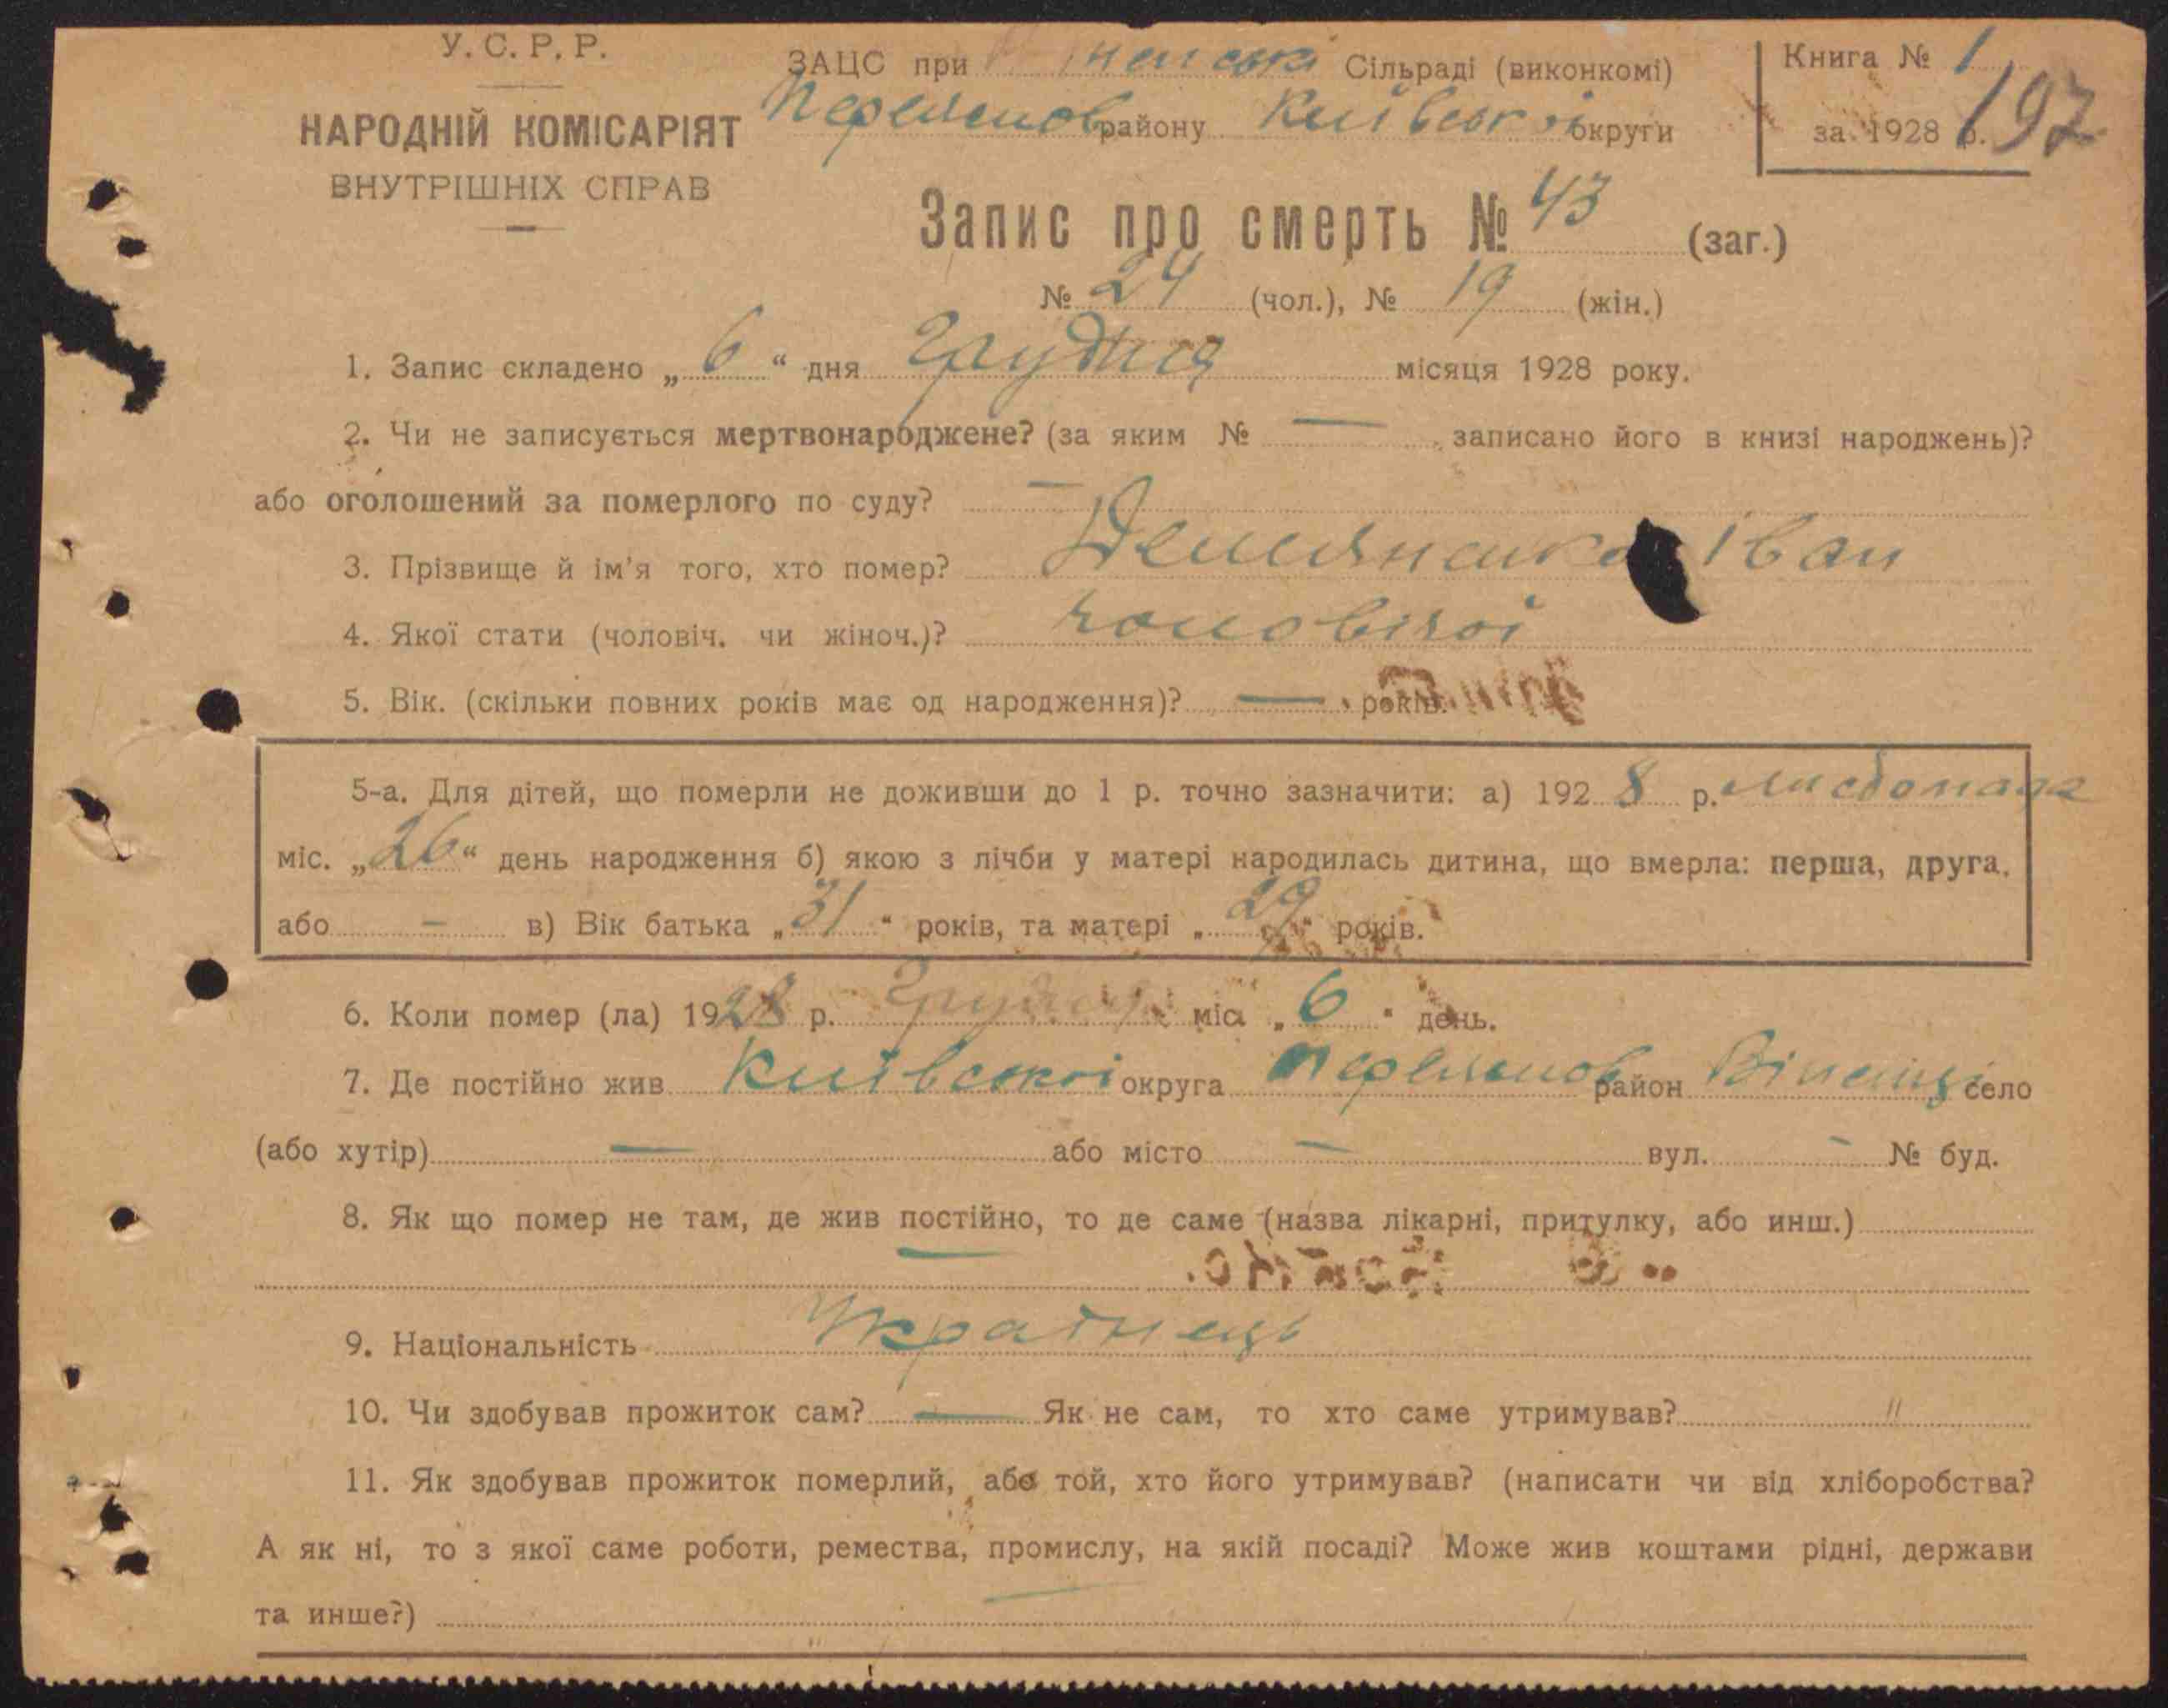 У. С. Р. Р.
НАРОДНІЙ КОМІСАРІЯТ
ВНУТРІШНІХ СПРАВ
ЗАЦС при Сільраді (виконкомі)
Переяслов району Київської округи
Книга № 1
за 1928 р.
197
Запис про смерть № 43 (заг.)
№ 24 (чол.), № 19 (жін.)
1. Запис складено „ 6 “ дня Грудня місяця 1928 року.
2. Чи не записується мертвонароджене? (за яким № — записано його в книзі народжень)?
або оголошений за померлого по суду? —
3. Прізвище й ім'я того, хто помер? Іван
4. Якої стати (чоловіч. чи жіноч.)? чоловічої
5. Вік. (скільки повних років має од народження)? — років.
5-а. Для дітей, що померли не доживши до 1 р. точно зазначити: а) 192 8 р. листопада
міс. „ 26 “ день народження б) якою з лічби у матері народилась дитина, що вмерла: перша, друга,
або — в) Вік батька „ 31 “ років, та матері „ 29 “ років.
6. Коли помер (ла) 1928 р. Грудня міс. „ 6 “ день.
7. Де постійно жив Київської округа Переяслов район Віненці село
(або хутір) — або місто — вул. — № буд.
8. Як що помер не там, де жив постійно, то де саме (назва лікарні, притулку, або инш.)
—
9. Національність Українець
10. Чи здобував прожиток сам? — Як не сам, то хто саме утримував? "
11. Як здобував прожиток померлий, або той, хто його утримував? (написати чи від хліборобства?
А як ні, то з якої саме роботи, ремества, промислу, на якій посаді? Може жив коштами рідні, держави
та инше?) —